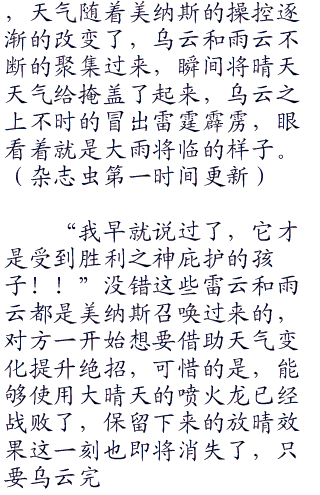 ，天气随着美纳斯的操控逐
渐的改变了，乌云和雨云不
断的聚集过来，瞬间将晴天
天气给掩盖了起来，乌云之
上不时的冒出雷霆霹雳，眼
看着就是大雨将临的样子。
（杂志虫第一时间更新）
“我早就说过了，它才
是受到胜利之神庇护的孩
子！！”没错这些雷云和雨
云都是美纳斯召唤过来的，
对方一开始想要借助天气变
化提升绝招，可惜的是，能
够使用大晴天的喷火龙已经
战败了，保留下来的放晴效
果这一刻也即将消失了，只
要乌云完